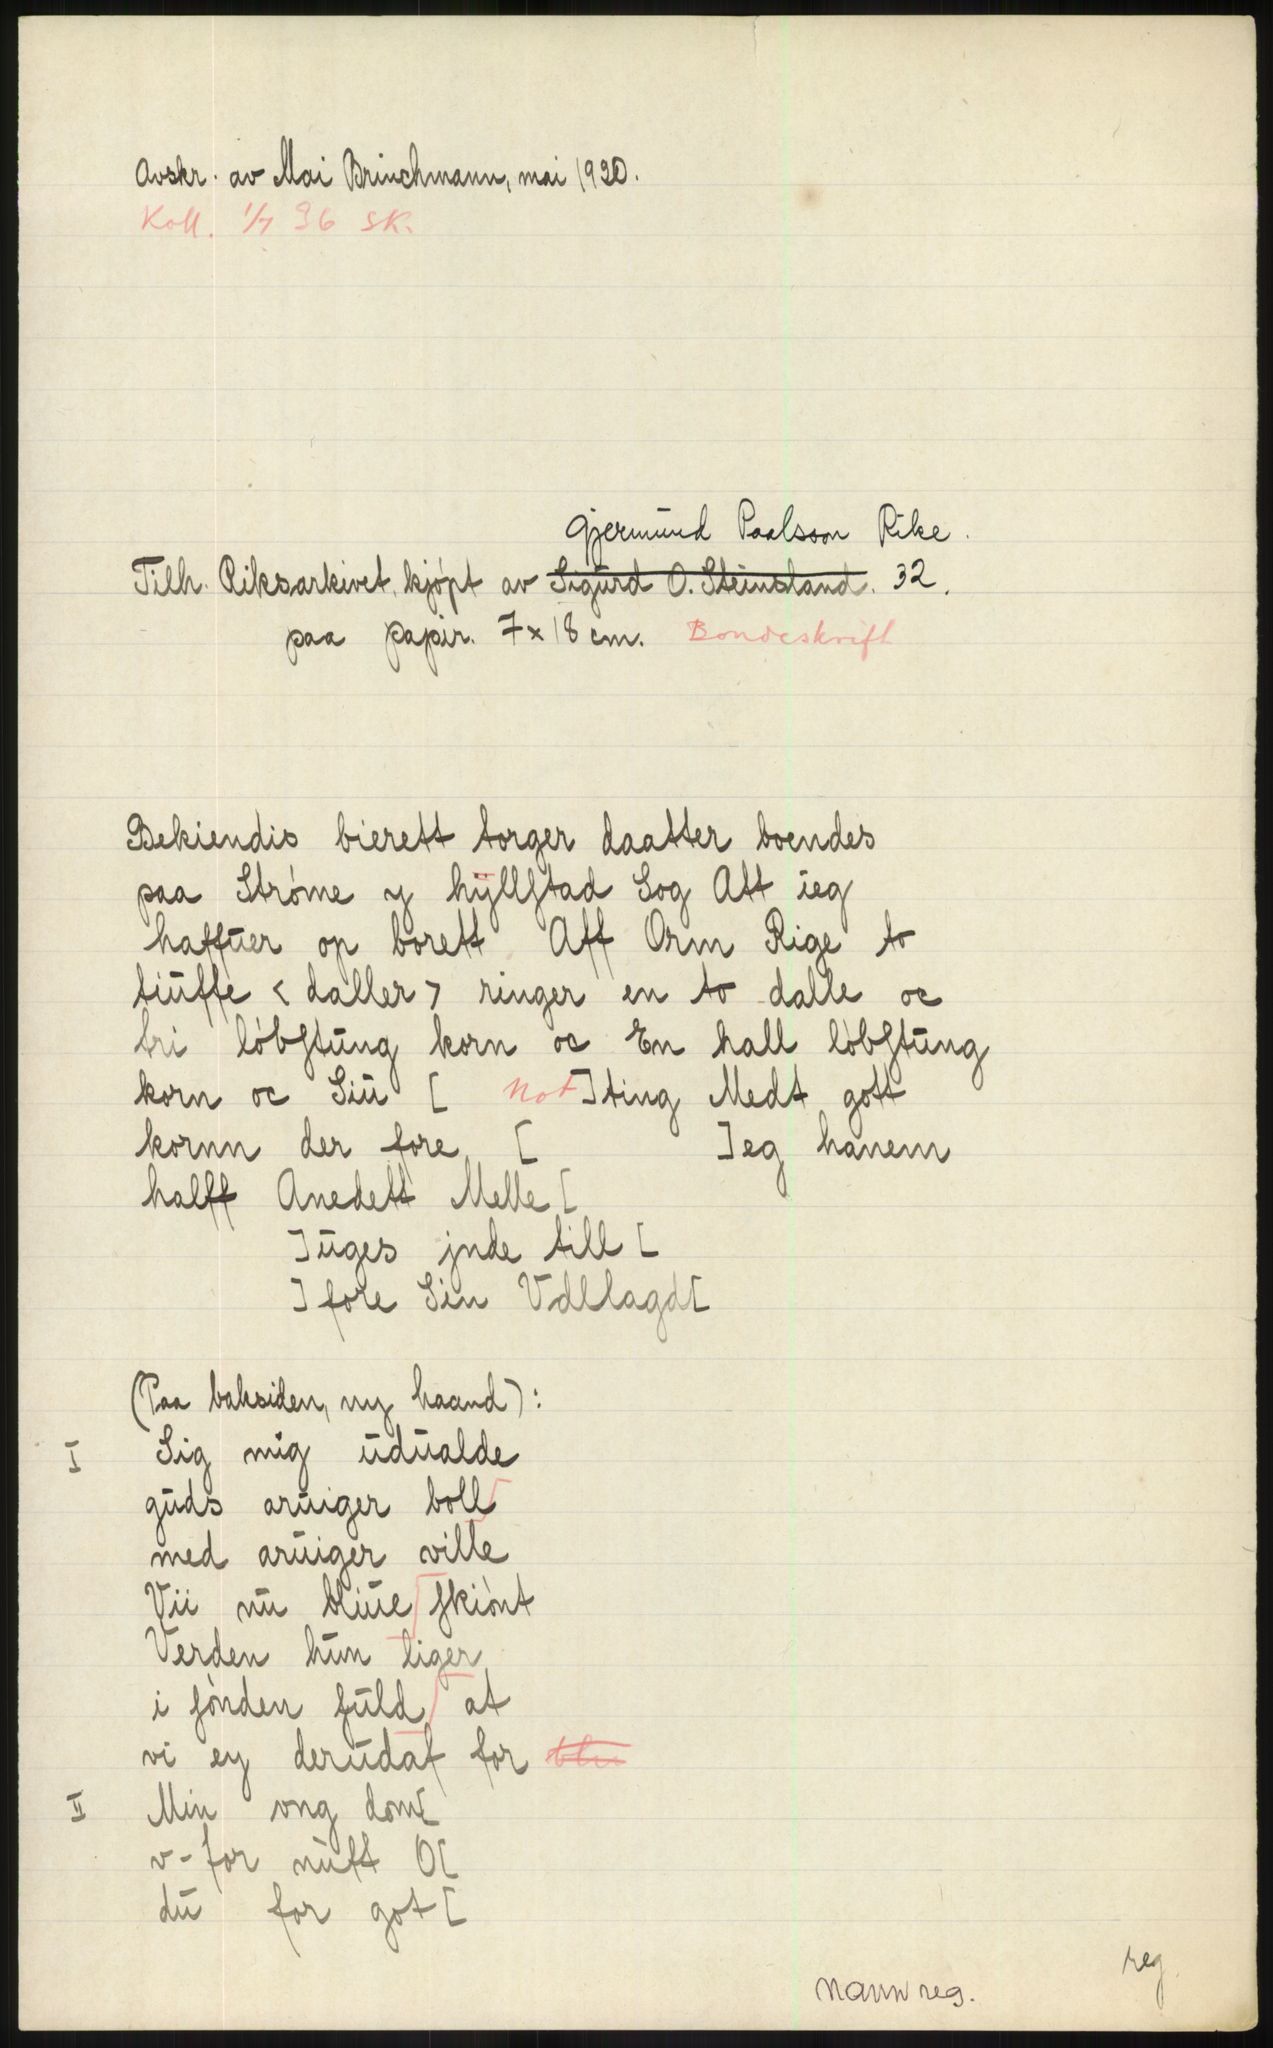 Avskr. av Mai Brinchmann, mai 1920.
Koll. 1/7 36 SK.
Gjermund Paalsson Rike.
Tilh. Riksarkivet, kjøpt av Sigurd O. Steinsland. 32.
paa papir. 7 x 18 cm. Bondeskrift
Bekiendis bierett torger daatter boendes
paa Strøme y hÿllstad Sog Att ieg
haffuer op borett Aff Orm Rige to
tiuffe < daller > ringer en to dalle oc
tri løbstung korn oc En hall løbstung
korn oc Siu [ not ]ting Medt gott
kornn der fore [ ]eg hanem
halff Anedett Melle [
]uges jnde till [
] fore Sin Vdllagd[
(Paa baksiden, ny haand):
I Sig mig udualde
guds aruiger boll
med aruiger ville
Vii nu bliue skiønt
Verden hun liger
i sønden fuld at
vi ey derudaf for blu
II Min vng dom[
v-for nutt O[
du for got [
reg.
Navn reg.